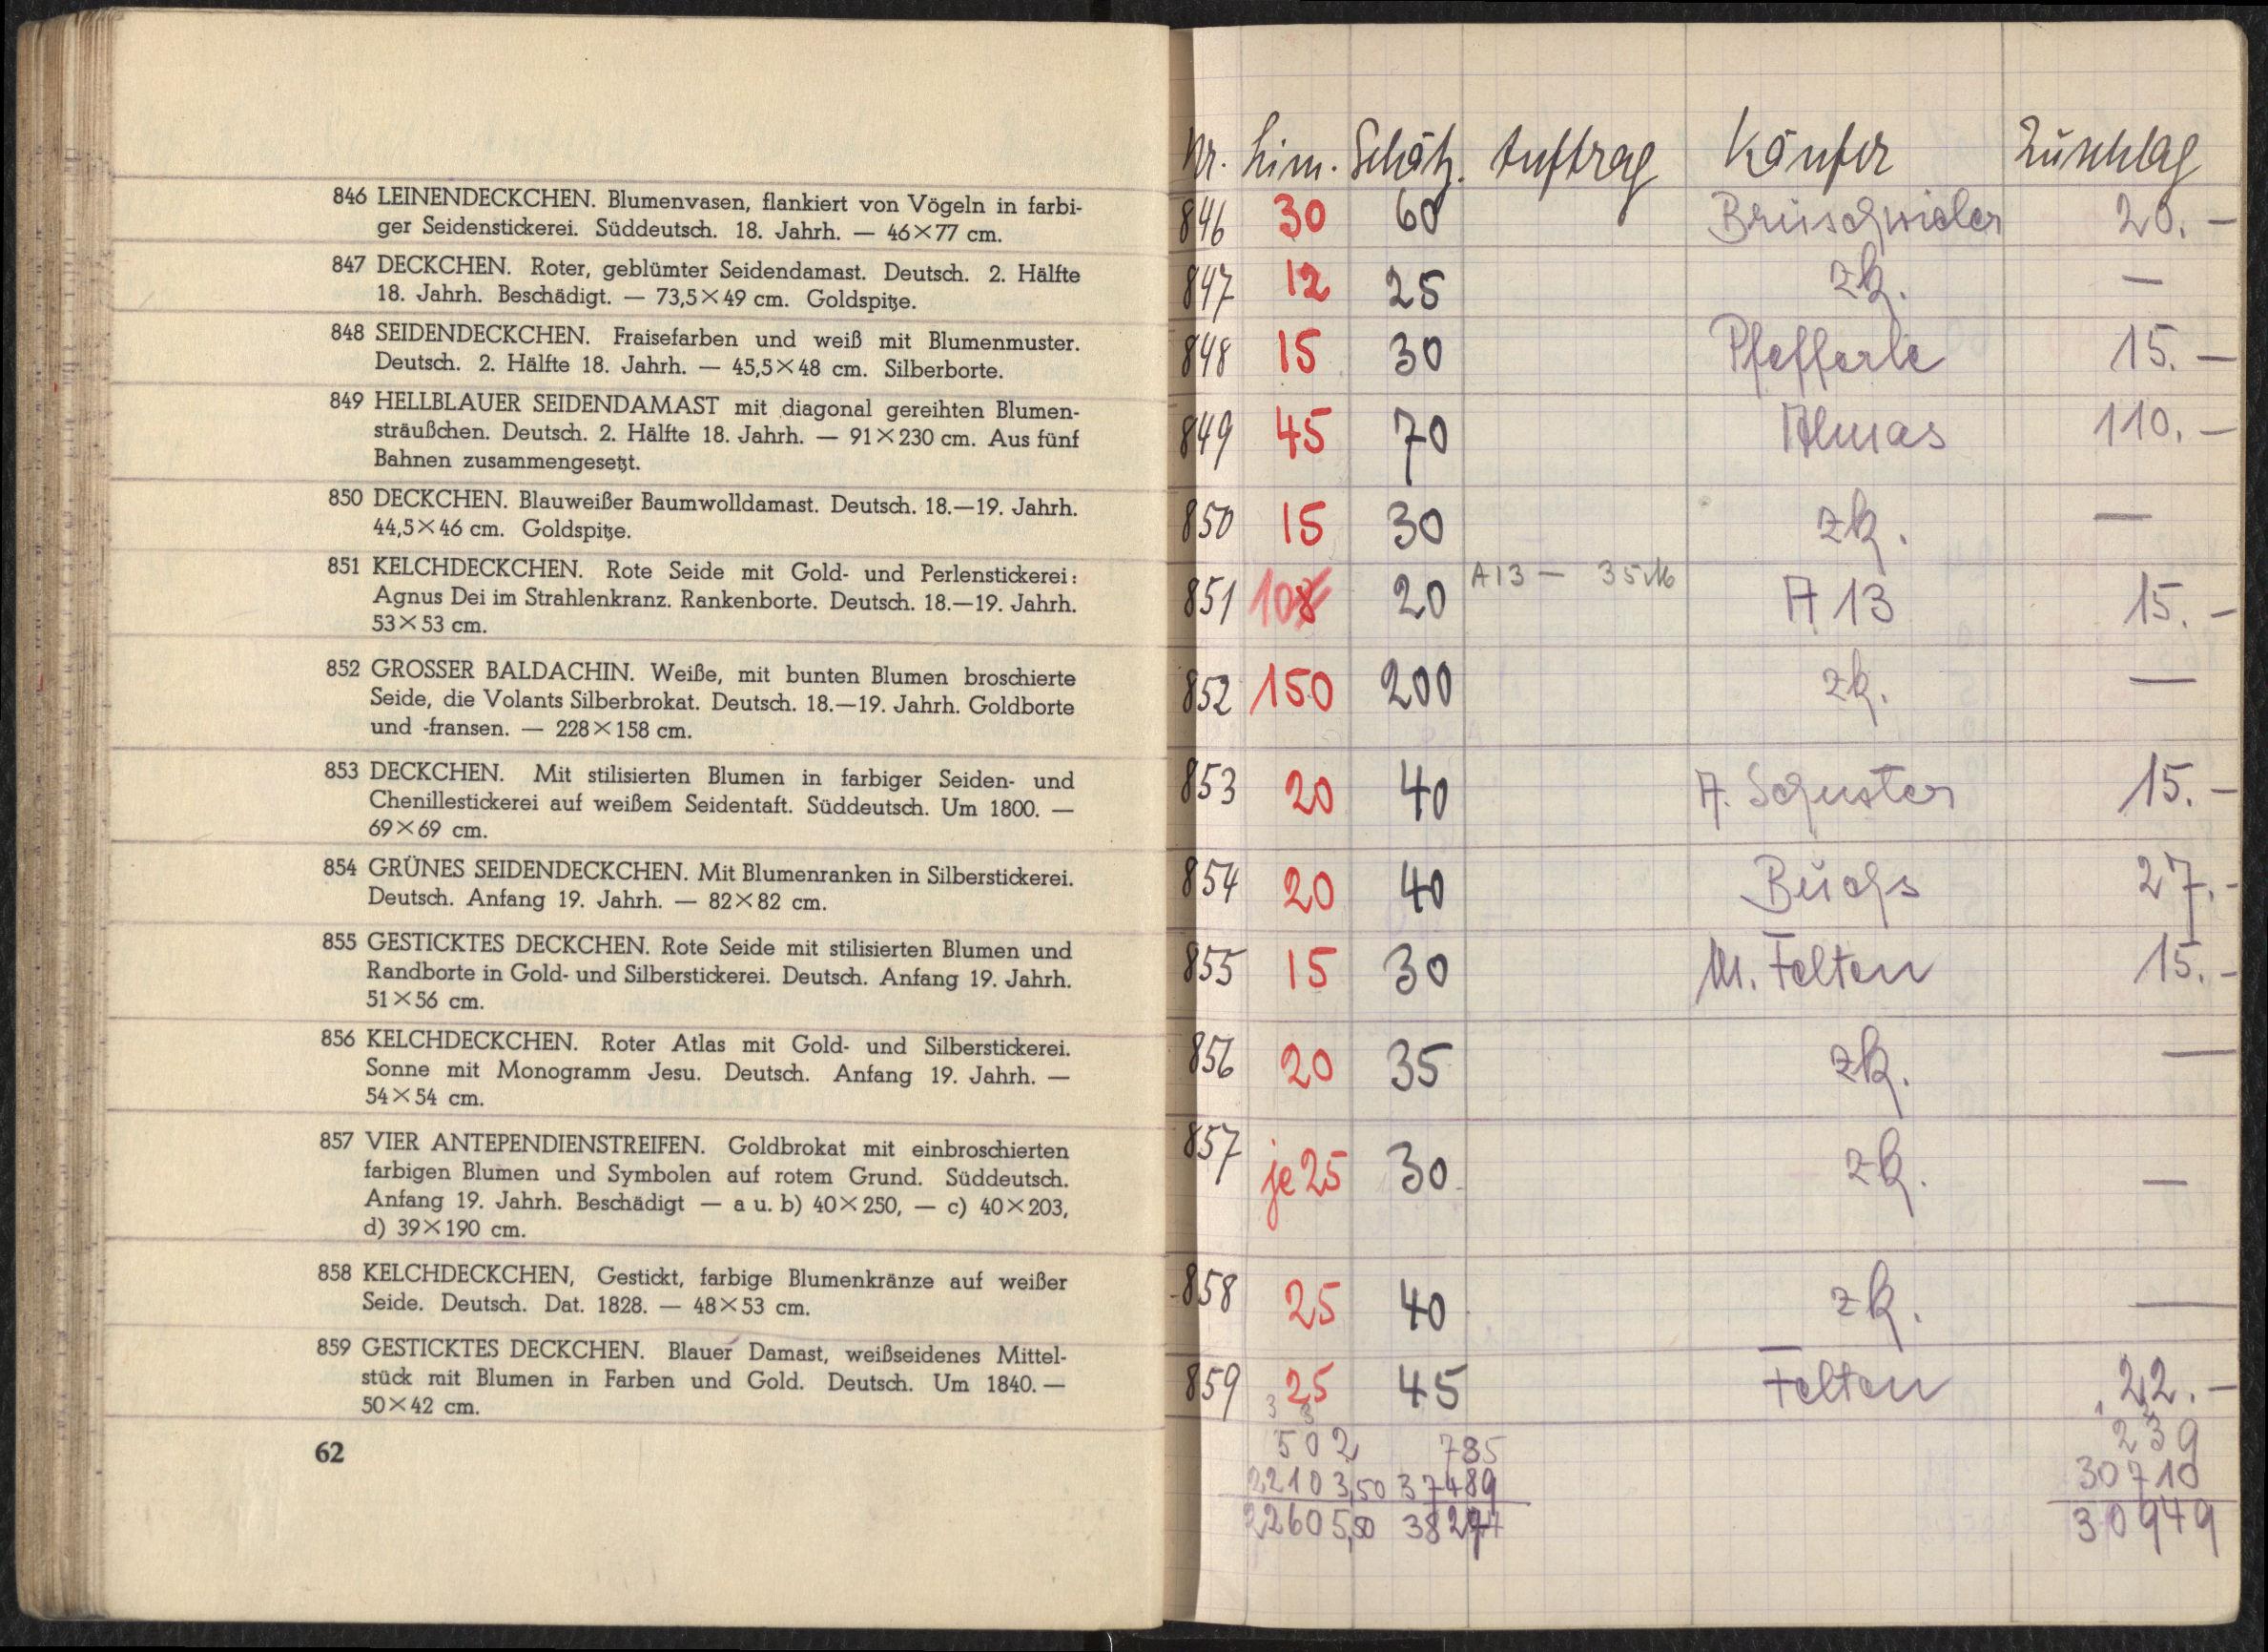 846 LEINENDECKCHEN. Blumenvasen, flankiert von Vögeln in farbi-
ger Seidenstickerei. Süddeutsch. 18. Jahrh. — 46×77 cm.
847 DECKCHEN. Roter, geblümter Seidendamast. Deutsch. 2. Hälfte
18. Jahrh. Beschädigt. — 73,5×49 cm. Goldspitze.
848 SEIDENDECKCHEN. Fraisefarben und weiß mit Blumenmuster.
Deutsch. 2. Hälfte 18. Jahrh. — 45,5×48 cm. Silberborte.
849 HELLBLAUER SEIDENDAMAST mit diagonal gereihten Blumen-
sträußchen. Deutsch. 2. Hälfte 18. Jahrh. — 91×230 cm. Aus fünf
Bahnen zusammengesetzt.
850 DECKCHEN. Blauweißer Baumwolldamast. Deutsch. 18.—19. Jahrh.
44,5×46 cm. Goldspitze.
851 KELCHDECKCHEN. Rote Seide mit Gold- und Perlenstickerei:
Agnus Dei im Strahlenkranz. Rankenborte. Deutsch. 18.—19. Jahrh.
53×53 cm.
852 GROSSER BALDACHIN. Weiße, mit bunten Blumen broschierte
Seide, die Volants Silberbrokat. Deutsch. 18.—19. Jahrh. Goldborte
und -fransen. — 228×158 cm.
853 DECKCHEN. Mit stilisierten Blumen in farbiger Seiden- und
Chenillestickerei auf weißem Seidentaft. Süddeutsch. Um 1800. —
69×69 cm.
854 GRÜNES SEIDENDECKCHEN. Mit Blumenranken in Silberstickerei.
Deutsch. Anfang 19. Jahrh. — 82×82 cm.
855 GESTICKTES DECKCHEN. Rote Seide mit stilisierten Blumen und
Randborte in Gold- und Silberstickerei. Deutsch. Anfang 19. Jahrh.
51×56 cm.
856 KELCHDECKCHEN. Roter Atlas mit Gold- und Silberstickerei.
Sonne mit Monogramm Jesu. Deutsch. Anfang 19. Jahrh. —
54×54 cm.
857 VIER ANTEPENDIENSTREIFEN. Goldbrokat mit einbroschierten
farbigen Blumen und Symbolen auf rotem Grund. Süddeutsch.
Anfang 19. Jahrh. Beschädigt — a u. b) 40×250, — c) 40×203,
d) 39×190 cm.
858 KELCHDECKCHEN, Gestickt, farbige Blumenkränze auf weißer
Seide. Deutsch. Dat. 1828. — 48×53 cm.
859 GESTICKTES DECKCHEN. Blauer Damast, weißseidenes Mittel-
stück mit Blumen in Farben und Gold. Deutsch. Um 1840. —
50×42 cm.
62
Nr. Lim. Schätz. Auftrag Käufer Zuschlag
846 30 60 Brüschwiler 20.—
847 12 25 zk. —
848 15 30 Pfefferle 15.—
849 45 70 Almas 110.—
850 15 30 zk. —
851 10 8 20 A13 — 35 M A 13 15.—
852 150 200 zk. —
853 20 40 A. Schuster 15.—
854 20 40 Büchs 27.-
855 15 30 M. Felten 15.-
856 20 35 zk. —
857 je 25 30 zk. —
858 25 40 zk. —
859 25 45 Felten 22.—
502 785 239
22103,50 37489 30710
22605,50 30949